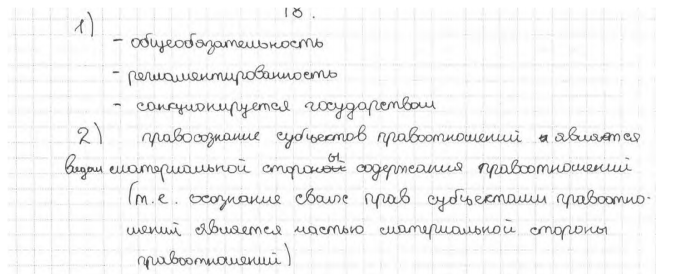 18.
1)
- общеобязательность
- регламентированность
- санкционируется государством
2) правосознание субъектов правоотношений является
видом материальной стороны содержания правоотношений
(т.е. осознание своих прав субъектами правоотно-
шений является частью материальной стороны
правоотношений)